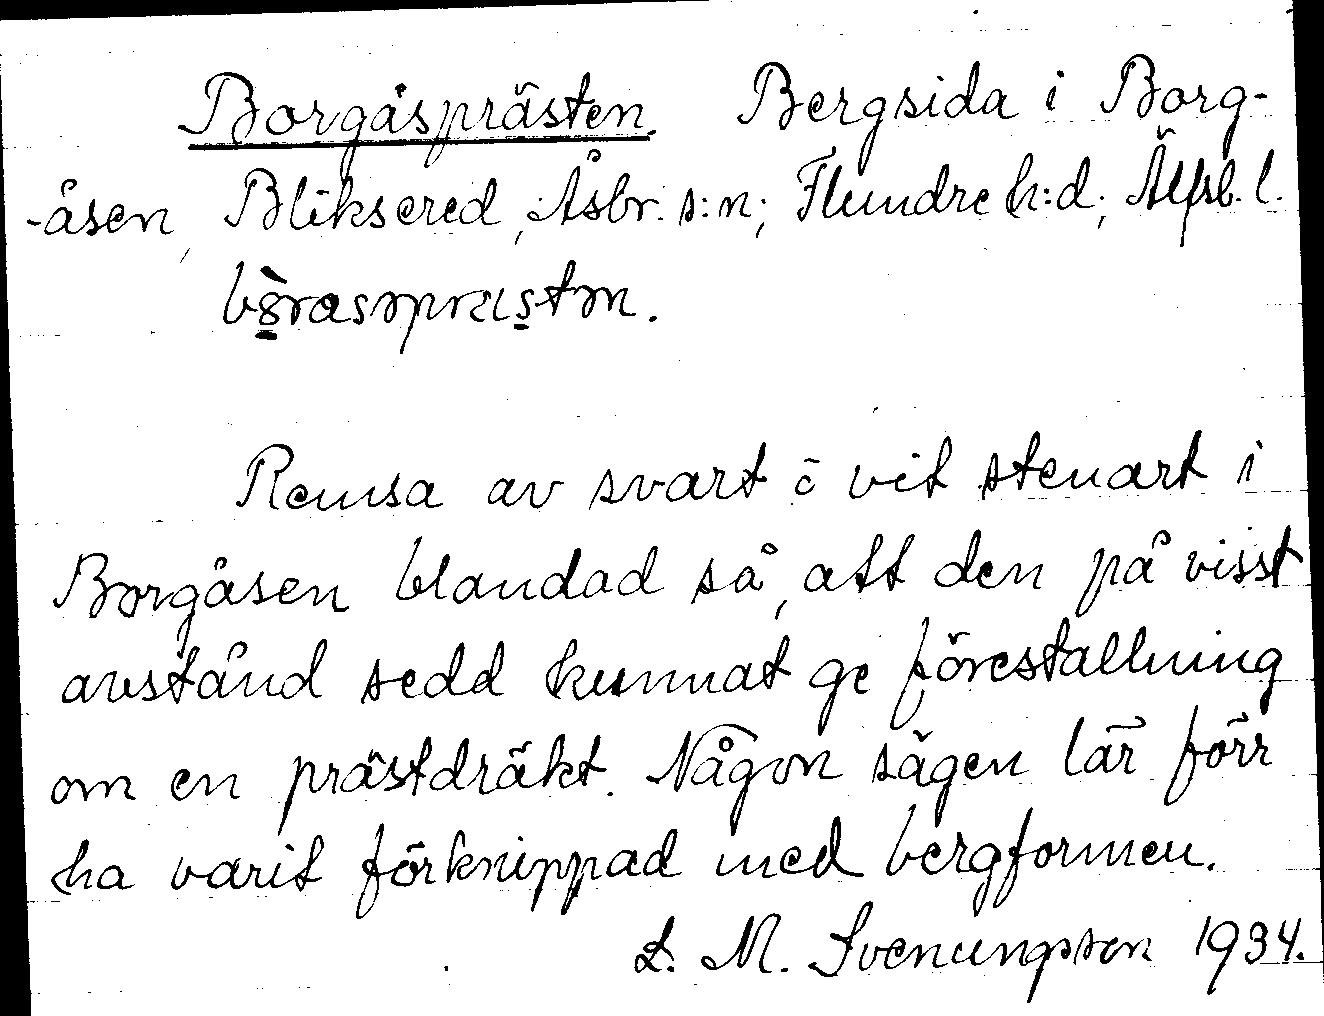 Borgåsprästen. Bergsida i Borg-
-åsen, Bliksered, Åsbr. s:n; Flundre h:d; Älfsb. l.
Remsa av svart o vit stenart i
Borgåsen blandad så, att den på visst
avstånd sedd kunnat ge föreställning
om en prästdräkt. Någon sägen lär förr
ha varit förknippad med bergformen.
L. M. Svenungsson 1934.